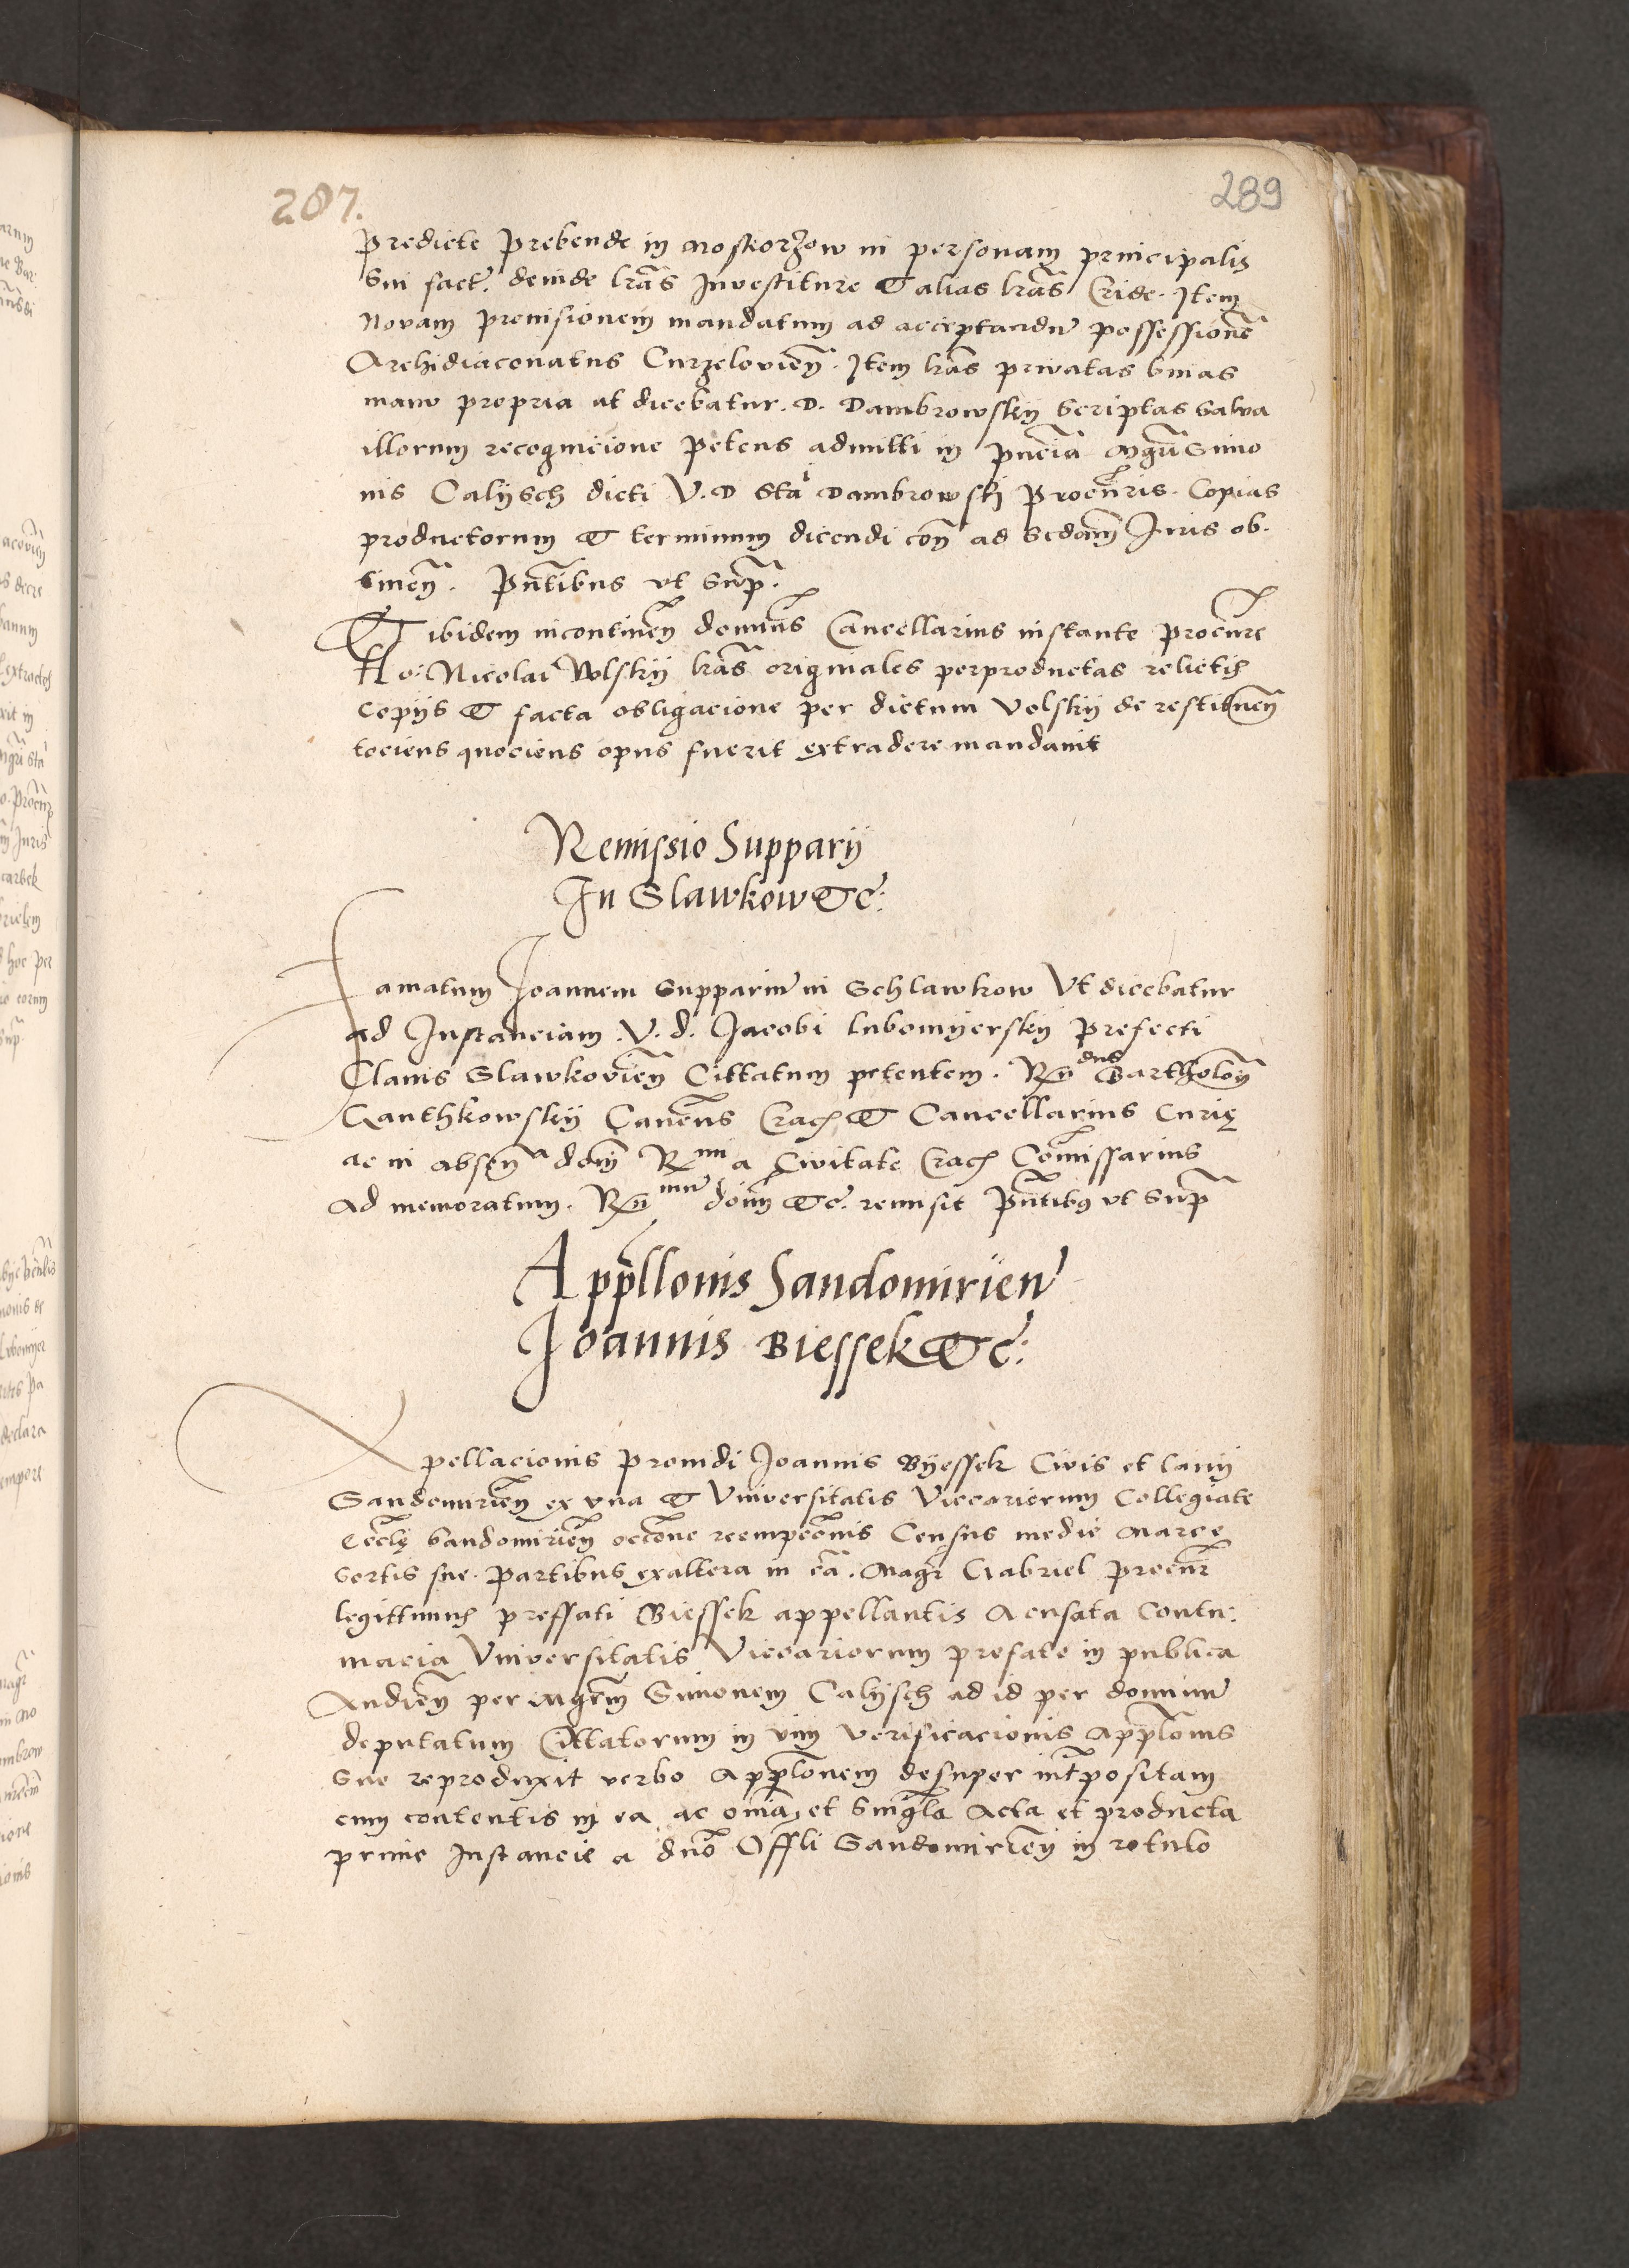 287.
289
predicte prebende in Moskorzow in personam principalis
sui fact. deinde lras Investiture et alias lras Cride. Item
Novam provisionem mandatum ad acceptandu possessione
Archidiaconatus Curzelovien. Item lras privatas binas
manu propria ut dicebatur. D. Dambrowskij scriptas salva
illorum recognicione petens admitti in pncia Mgri Simo
nis Calijsch dicti V. D Sta Dambrowskj Procuris. Copias
productorum et terminum dicendi con ad scdam Juris ob.
tinen. Pntibus ut Sup.
Et ibidem incontinen dominus Cancellarius instante procure
No: Nicolai Wolskij lras originales perproductas relictis
copijs et facta obligacione per dictum Volskij de restituen
tociens quociens opus fuerit extradere mandavit
Remissio Supparij
In Slawkow etc:
Famatum Joannem Suppariu in Schlawkow Ut dicebatur
ad Instanciam V. d. Jacobi lubomijerskij Prefecti
Clavis Slawkovien Cittatum petentem. Rn dns Bartholom
Ganthkowskij Cancus Crac et Cancellarius Curię
ac in absena dom Rmi a Civitate Crac Comissarius
ad memoratum. Rnmu dom etc. remisit Pntibus ut Sup
Appllonis Sandomirien
Joannis Biessek etc:
Apellacionis providi Joannis Bijessek Civis et lanij
Sandomirien ex una et Universitatis Viccariorum Collegiate
Eccle Sandomirien occone reempcionis Census medie Marce
sortis sue. Partibus exaltera in ca. Magr Gabriel Procur
legittimus preffati Biessek appellantis Acusata Contu:
macia Universitatis Viccariorum prefate in publica
Audien per Mgrm Simonem Calijsch ad id per dominu
deputatum Cittatorum in vim verificacionis Applonis
sue reproduxit verbo Applonem desuper intpositam
cum contentis in ea, ac omia et singla Acta et producta
prime Instancie a dno Offli Sandomirien in rotulo